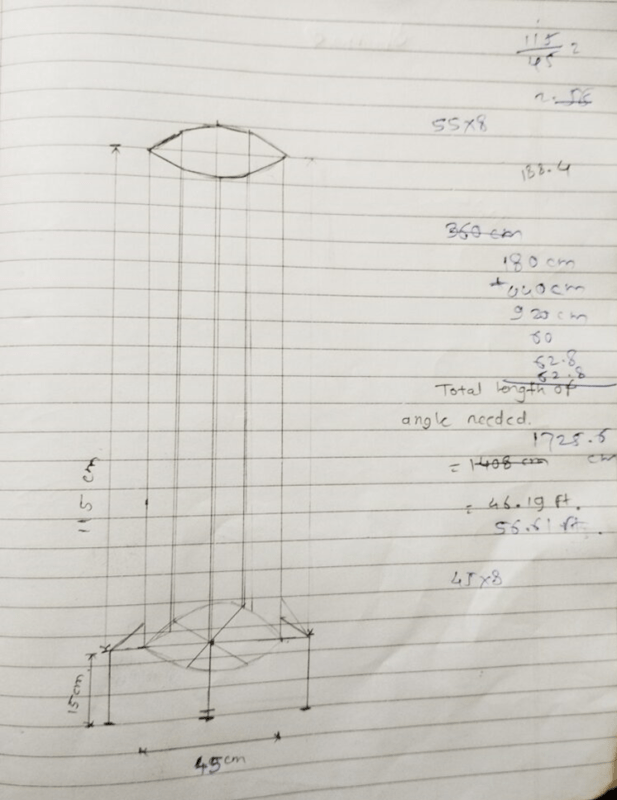 115
45
55×8
138.4
350 cm
180 cm
920 cm
60
62.8
62.8
Total length of
angle needed.
1725.6
cm
= 1408 cm
= 46.19 ft.
56.61 ft.
45×8
115 cm
15cm
45cm